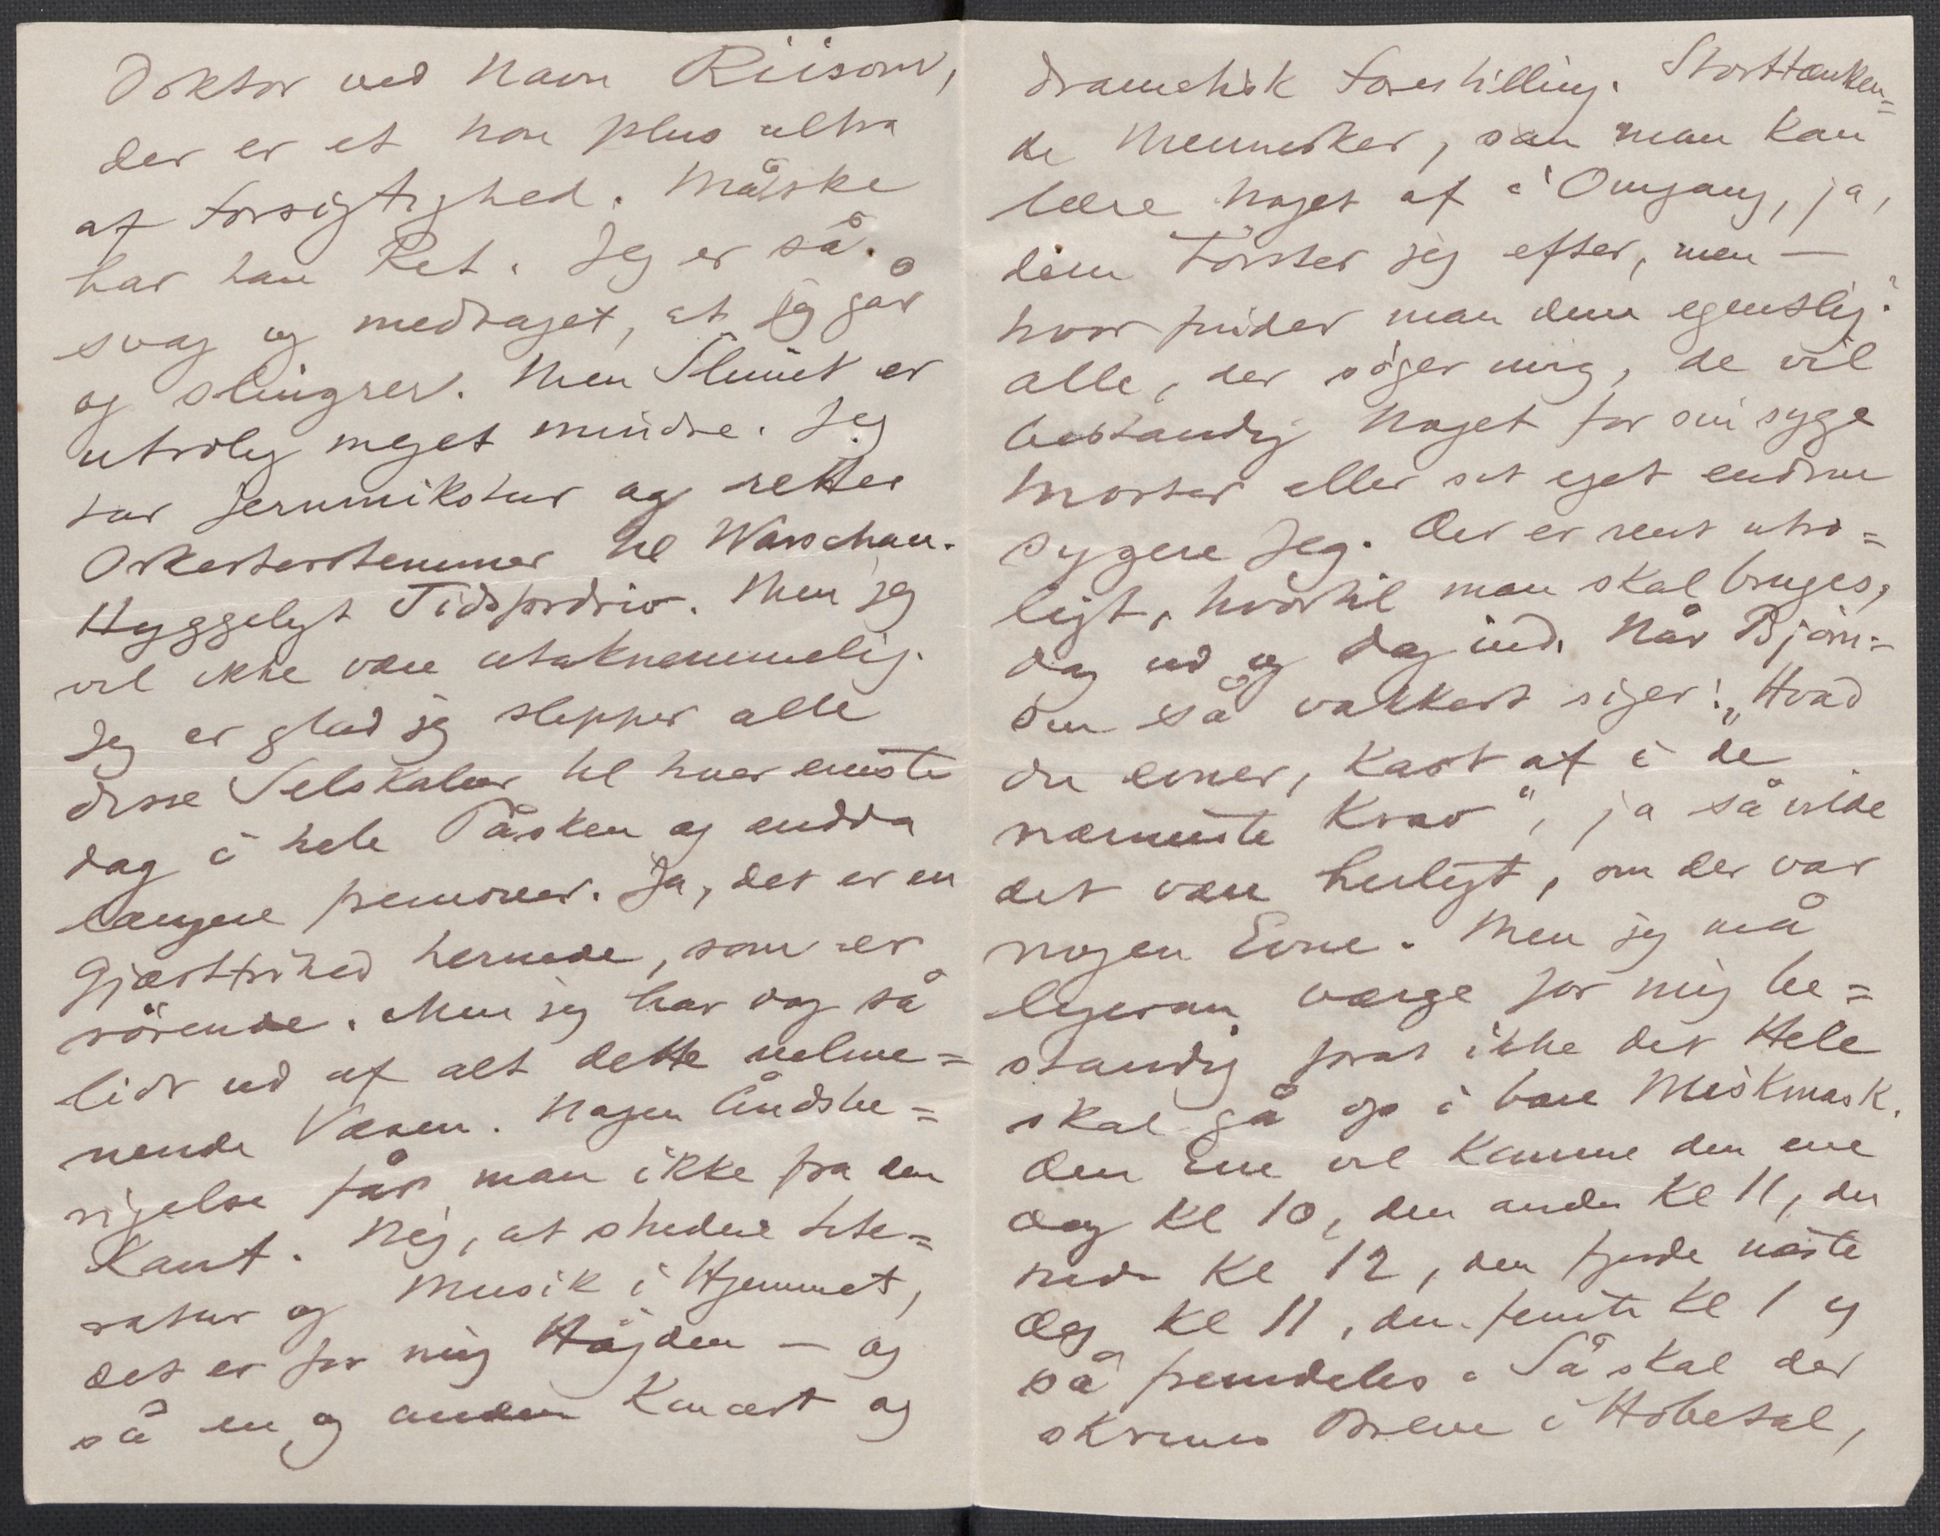 Doktor ved Navn Riisom,
der er et non plus ultra
af Forsigtighed. Måske
har han Ret. Jeg er så
svag og medtaget, at jeg går
og slingrer. Men Slimet er
utrolig meget mindre. Jeg
tar Jernmikstur og retter
Orkesterstemmer til Warschau.
Hyggeligt Tidsfordriv. Men jeg
vil ikke være utaknemmelig.
Jeg er glad jeg slipper alle
disse Selskaber til hver eneste
dag i hele Påsken og endda
længere fremover. Ja, det er en
Gjæstfrihed hernede, som er
rörende. Men jeg har dog så
lidt ud af alt dette velme=
nende Væsen. Nogen Åndsbe=
rigelse får man ikke fra den
Kant. Nej, at studere Lite=
ratur og Musik i Hjemmet,
det er for mig Højden — og
så en og anden Koncert og
dramatisk Forestilling. Stort tænken=
de Mennesker, som man kan
lære noget af i Omgang, ja,
dem törster jeg efter, men —
hvor finder man dem egentlig?
Alle, der söger mig, de vil
bestandig noget for sin syge
Moster eller sit eget endnu
sygere Jeg. Det er rent utro=
ligt, hvortil man skal bruges,
dag ud og dag ind. Når Björn=
son så vakkert siger: „Hvad
du evner, kast af i de
nærmeste Krav", ja så vilde
det være herligt, om der var
nogen Evne. Men jeg må
ligesom værge for mig be=
standig forat ikke det Hele
skal gå op i bare Miskmask.
Den Ene vil komme den ene
Dag Kl 10, den anden Kl 11, den
tredie Kl 12, den fjerde næste
Dag Kl 11, den femte Kl 1 og
så fremdeles. Så skal der
skrives Breve i Hobetal,